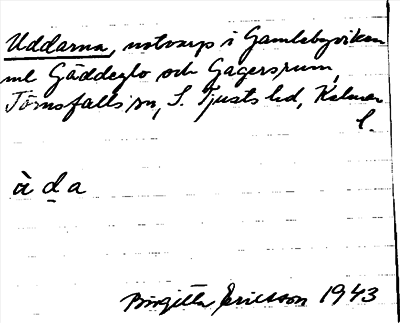 Uddarna, notvarp i Gamlebyviken
ml Gäddeglo och Gagersrum,
Törnsfalls sn, S. Tjusts hd, Kalmar
l.
à d̲ a
Birgitta Ericsson 1943